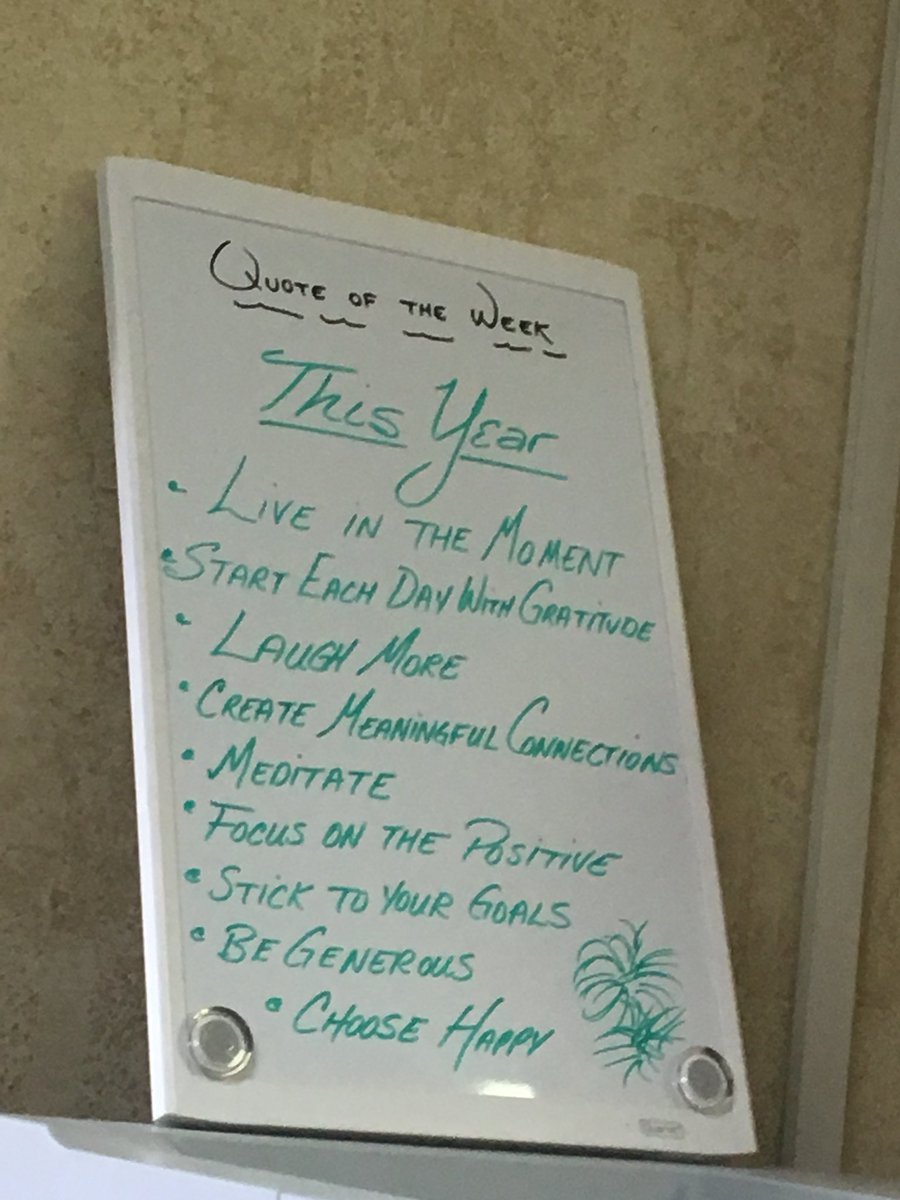 QUOTE OF THE WEEK
This Year
• LIVE IN THE MOMENT
• START EACH DAY WITH GRATITUDE
• LAUGH MORE
• CREATE MEANINGFUL CONNECTIONS
• MEDITATE
• FOCUS ON THE POSITIVE
• STICK TO YOUR GOALS
• BE GENEROUS
• CHOOSE HAPPY